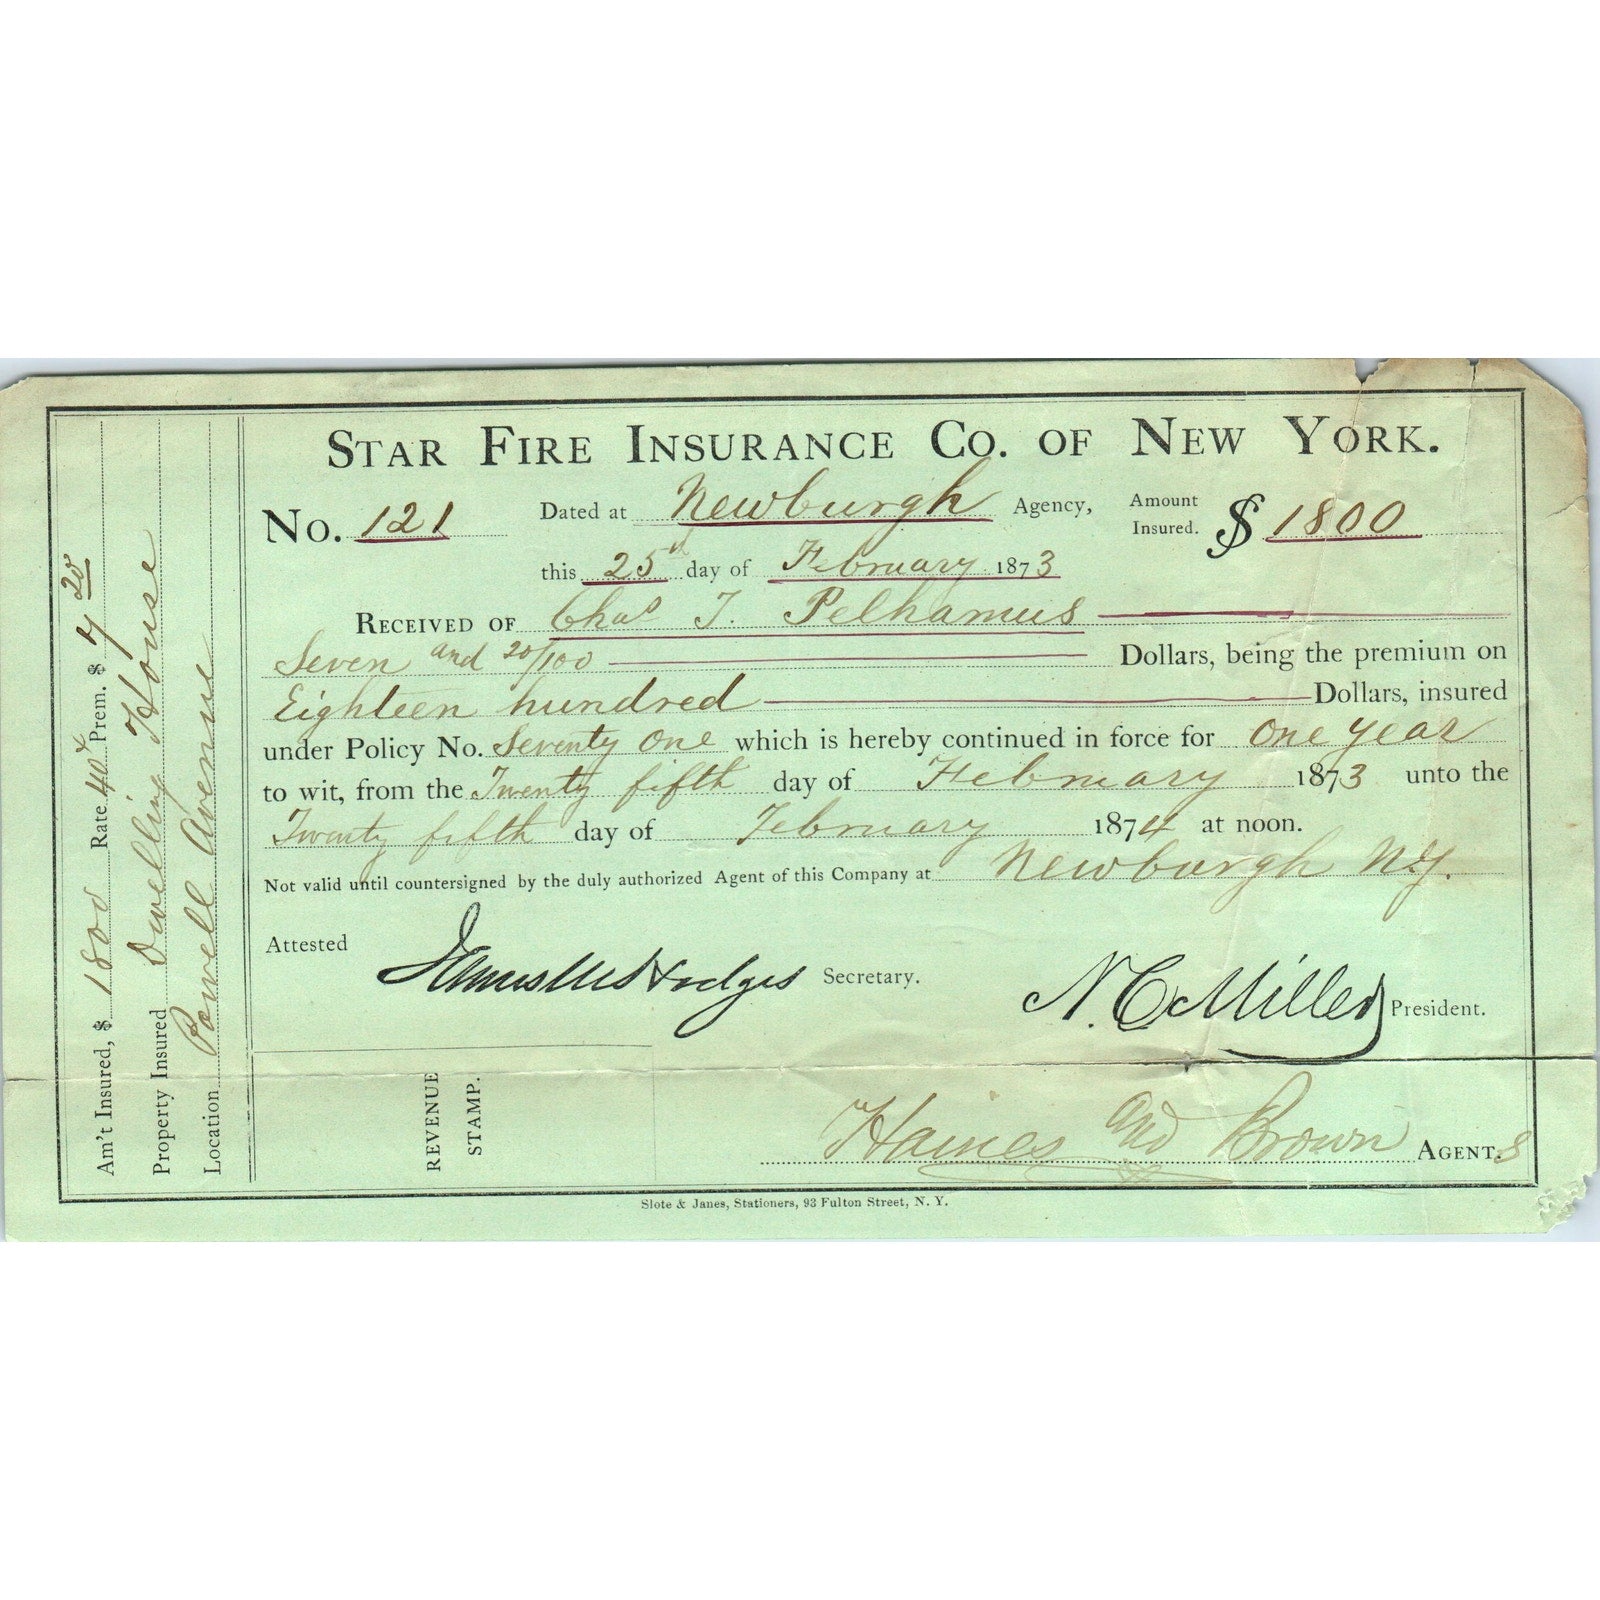 STAR FIRE INSURANCE CO. OF NEW YORK.
No. 121 Dated at Newburgh Agency, Amount Insured. $ 1800
this 25th day of February 1873
RECEIVED OF Chas T. Pelhamus
Seven and 20/100 Dollars, being the premium on
Eighteen hundred Dollars, insured
under Policy No. Seventy One which is hereby continued in force for One year
to wit, from the Twenty fifth day of February 1873 unto the
Twenty fifth day of February 1874 at noon.
Not valid until countersigned by the duly authorized Agent of this Company at Newburgh N.Y.
Attested James M Hodges Secretary.
N. C. Miller President.
REVENUE
STAMP.
Haines and Brown AGENT.s
Slote & Janes, Stationers, 93 Fulton Street, N. Y.
Am't Insured, $ 1800 Rate 40 Prem. $ 7 20
Property Insured Dwelling House
Location Powell Avenue